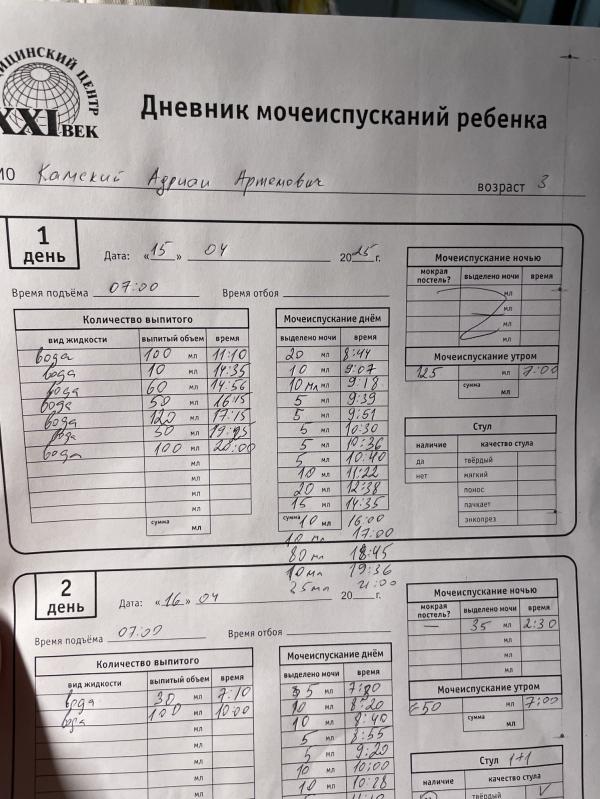 МЕДИЦИНСКИЙ ЦЕНТР
XXI ВЕК
Дневник мочеиспусканий ребенка
Камский Адриан Артемович возраст 3
1 день
Дата: «15» 04 2025г.
Время подъёма 07:00 Время отбоя
Количество выпитого
вид жидкости выпитый объем время
вода 100 мл 11:10
вода 10 мл 14:35
вода 60 мл 14:56
вода 50 мл 16:15
вода 120 мл 17:15
вода 50 мл
вода 100 мл 20:00
мл
мл
мл
мл
сумма мл
Мочеиспускание днём
выделено мочи время
20 мл 8:44
10 мл 9:07
10 мл 9:18
5 мл 9:39
5 мл 9:51
5 мл 10:30
5 мл 10:36
5 мл 10:40
10 мл 11:22
20 мл 12:38
15 мл 14:35
сумма 10 мл 16:00
10 мл 17:00
80 мл 18:45
10 мл 19:36
25 мл 21:00
Мочеиспускание ночью
мокрая постель? выделено мочи время
мл
мл
мл
мл
Мочеиспускание утром
125 мл 7:00
сумма мл
Стул
наличие качество стула
да твёрдый
нет мягкий
понос
пачкает
энкопрез
2 день
Дата: «16» 04 20 г.
Время подъёма 07:00 Время отбоя
Количество выпитого
вид жидкости выпитый объем время
вода 30 мл 7:10
вода 100 мл 10:00
мл
мл
мл
мл
Мочеиспускание днём
выделено мочи время
мл
10 мл 8:20
10 мл 8:40
5 мл 8:55
5 мл 9:20
10 мл 10:00
10 мл 10:28
мл
Мочеиспускание ночью
мокрая постель? выделено мочи время
— 35 мл 2:30
мл
мл
мл
Мочеиспускание утром
50 мл 7:00
сумма мл
Стул 1+1
наличие качество стула
твёрдый